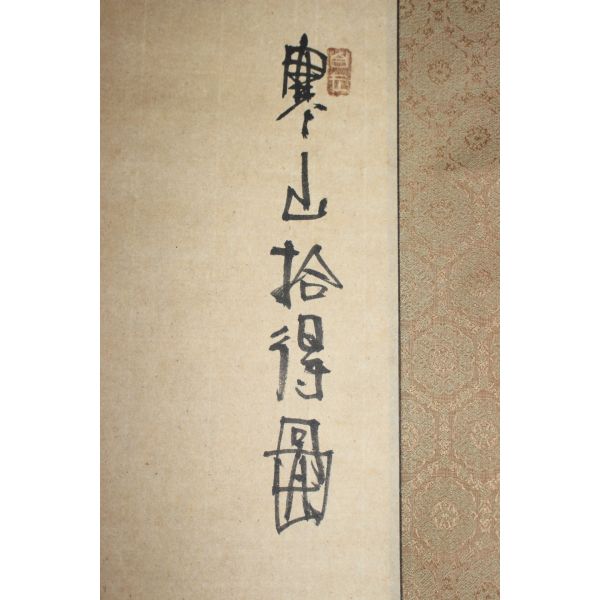 寒山拾得圖